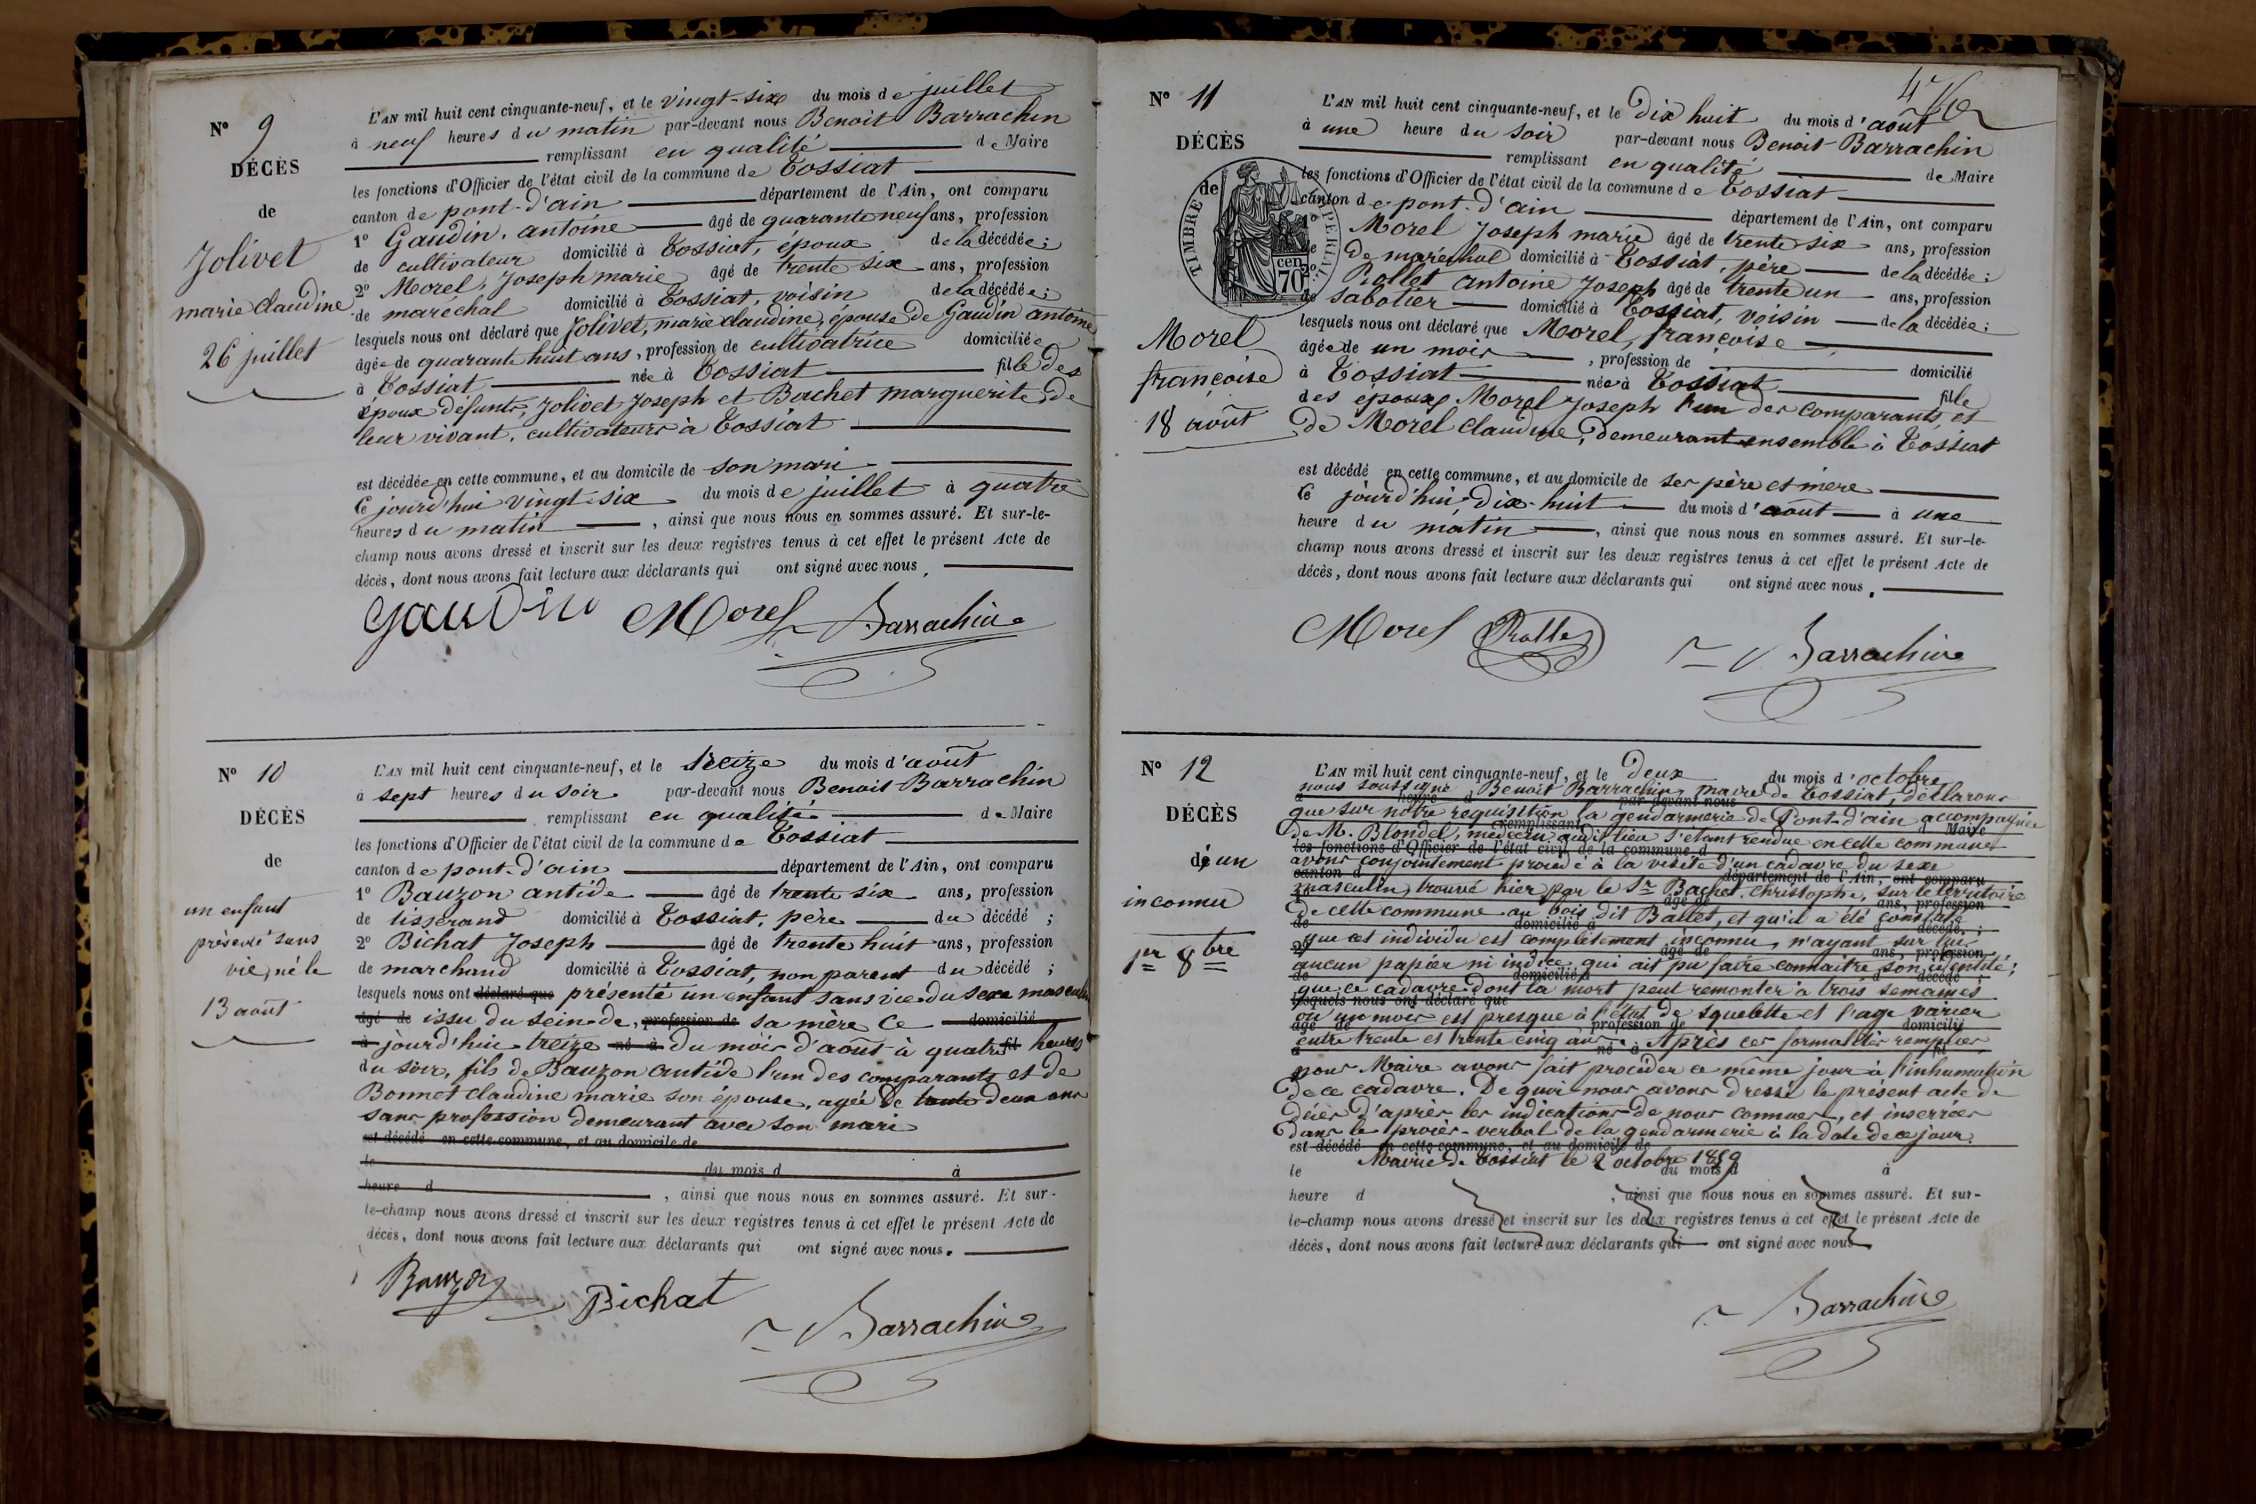 Nº 9
DÉCÈS
de
Jolivet
marie claudine
26 juillet
L'AN mil huit cent cinquante-neuf, et le vingt-six du mois de juillet
à neuf heures du matin par-devant nous Benoit Barrachin
remplissant en qualité de Maire
les fonctions d'Officier de l'état civil de la commune de Tossiat
canton de pont-d'ain département de l'Ain, ont comparu
1º Gaudin, antoine âgé de quarante neuf ans, profession
de cultivateur domicilié à Tossiat, époux de la décédée;
2º Morel, Joseph marie âgé de trente six ans, profession
de maréchal domicilié à Tossiat, voisin de la décédée;
lesquels nous ont déclaré que Jolivet, marie claudine, épouse de Gaudin antoine
âgée de quarante huit ans, profession de cultivatrice domiciliée
à Tossiat, née à Tossiat fille des
époux défunts, Jolivet Joseph et Bachet marguerite, de
leur vivant, cultivateurs à Tossiat
est décédée en cette commune, et au domicile de son mari
Ce jourd'hui vingt-six du mois de juillet à quatre
heures du matin, ainsi que nous nous en sommes assuré. Et sur-le-
champ nous avons dressé et inscrit sur les deux registres tenus à cet effet le présent Acte de
décès, dont nous avons fait lecture aux déclarants qui ont signé avec nous.
Gaudin Morel Barrachin
Nº 10
DÉCÈS
de
un enfant
présenté sans
vie, né le
13 août
L'AN mil huit cent cinquante-neuf, et le treize du mois d'août
à sept heures du soir par-devant nous Benoit Barrachin
remplissant en qualité de Maire
les fonctions d'Officier de l'état civil de la commune de Tossiat
canton de pont-d'ain département de l'Ain, ont comparu
1º Bauzon antide âgé de trente six ans, profession
de tisserand domicilié à Tossiat, père du décédé;
2º Bichat Joseph âgé de trente huit ans, profession
de marchand domicilié à Tossiat, non parent du décédé;
lesquels nous ont déclaré que présenté un enfant sans vie du sexe masculin
âgé de issu du sein de, profession de sa mère Ce domicilié
à jourd'hui treize né à du mois d'août à quatre fil heures
du soir, fils de Bauzon antide l'un des comparants et de
Bonnet claudine marie son épouse, agée de trente deux ans
sans profession demeurant avec son mari
est décédé en cette commune, et au domicile de
le du mois d à
heure d, ainsi que nous nous en sommes assuré. Et sur-
le-champ nous avons dressé et inscrit sur les deux registres tenus à cet effet le présent Acte de
décès, dont nous avons fait lecture aux déclarants qui ont signé avec nous.
Bauzon Bichat
Barrachin
Nº 11
DÉCÈS
de
TIMBRE IMPERIAL
70 cen
Morel
françoise
18 août
L'AN mil huit cent cinquante-neuf, et le Dix huit du mois d'août
à une heure du soir par-devant nous Benoit Barrachin
remplissant en qualité de Maire
les fonctions d'Officier de l'état civil de la commune de Tossiat
canton de pont-d'ain département de l'Ain, ont comparu
1º Morel Joseph marie âgé de trente six ans, profession
de De maréchal domicilié à Tossiat, père de la décédée;
2º Rollet antoine Joseph âgé de trente un ans, profession
de sabotier domicilié à Tossiat, voisin de la décédée;
lesquels nous ont déclaré que Morel, françoise
âgée de un mois, profession de domicilié
à Tossiat née à Tossiat fille
des époux Morel Joseph l'un des comparants, et
de Morel claudine, demeurant ensemble à Tossiat
est décédé en cette commune, et au domicile de ses père et mère
Ce jourd'hui Dix-huit du mois d'août à une
heure du matin, ainsi que nous nous en sommes assuré. Et sur-le-
champ nous avons dressé et inscrit sur les deux registres tenus à cet effet le présent Acte de
décès, dont nous avons fait lecture aux déclarants qui ont signé avec nous.
Morel Rollet Barrachin
Nº 12
DÉCÈS
d'un
inconnu
1er 8bre
L'AN mil huit cent cinquante-neuf, et le Deux du mois d'octobre
nous soussigné Benoit Barrachin, maire de Tossiat, déclarons
à heure d par-devant nous
que sur notre réquisition la gendarmerie de Pont-d'ain accompagnée
remplissant Maire
de M. Blondel, médecin audit lieu s'étant rendue en cette commune
les fonctions d'Officier de l'état civil de la commune d
avons conjointement procédé à la visite d'un cadavre du sexe
canton d département de l'Ain, ont comparu
masculin, trouvé hier par le Sr Bachet, christophe, sur le territoire
âgé de ans, profession
de cette commune au bois dit Ballet, et qu'il a été constaté
de domicilié à d décédé;
que cet individu est complètement inconnu, n'ayant sur lui
2º âgé de ans, profession
aucun papier ni indice qui ait pu faire connaitre son identité;
de domicilié à d décédé
que ce cadavre dont la mort peut remonter à trois semaines
lesquels nous ont déclaré que
ou un mois est presque à l'état de squelette et l'age varier
âgé de profession de domicilié
entre trente et trente cinq ans. Après ces formalités remplies
à né à fil
nous Maire avons fait procéder ce même jour à l'inhumation
de ce cadavre. De quoi nous avons dressé le présent acte de
décès d'après les indications de nous connues, et inserrées
dans le procès-verbal de la gendarmerie à la date de ce jour.
est décédé en cette commune, et au domicile de
Mairie de Tossiat le 2 octobre 1859
le du mois d à
heure d, ainsi que nous nous en sommes assuré. Et sur-
le-champ nous avons dressé et inscrit sur les deux registres tenus à cet effet le présent Acte de
décès, dont nous avons fait lecture aux déclarants qui ont signé avec nous
Barrachin